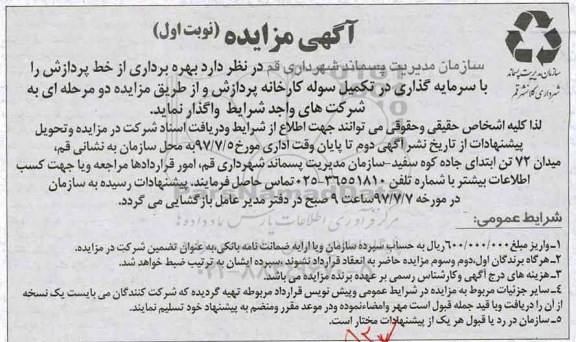 آگهی مزایده (نوبت اول)
سازمان مدیریت پسماند
شهرداری کلانشهر قم
سازمان مدیریت پسماند شهرداری قم در نظر دارد بهره برداری از خط پردازش را
با سرمایه گذاری در تکمیل سوله کارخانه پردازش و از طریق مزایده دو مرحله ای به
شرکت های واجد شرایط واگذار نماید.
لذا کلیه اشخاص حقیقی وحقوقی می توانند جهت اطلاع از شرایط ودریافت اسناد شرکت در مزایده وتحویل
پیشنهادات از تاریخ نشر آگهی دوم تا پایان وقت اداری مورخ ۹۷/۷/۵به محل سازمان به نشانی قم،
میدان ۷۲ تن ابتدای جاده کوه سفید-سازمان مدیریت پسماند شهرداری قم، امور قراردادها مراجعه ویا جهت کسب
اطلاعات بیشتر با شماره تلفن ۳۶۵۵۱۸۱۰-۰۲۵تماس حاصل فرمایند. پیشنهادات رسیده به سازمان
در مورخه ۹۷/۷/۷ساعت ۹ صبح در دفتر مدیر عامل بازگشایی می گردد.
شرایط عمومی:
۱-واریز مبلغ ۶۰۰/۰۰۰/۰۰۰ریال به حساب سپرده سازمان ویا ارایه ضمانت نامه بانکی،به عنوان تضمین شرکت در مزایده.
۲-هرگاه برندگان اول،دوم وسوم مزایده حاضر به انعقاد قرارداد نشوند ،سپرده ایشان به ترتیب ضبط خواهد شد.
۳-هزینه های درج آگهی وکارشناس رسمی بر عهده برنده مزایده می باشد.
۴-سایر جزئیات مربوط به مزایده در شرایط عمومی وپیش نویس قرارداد مربوطه تهیه گردیده که شرکت کنندگان می بایست یک نسخه
از آن را دریافت وبا قید جمله قبول است مهر وامضاءنموده ودر موعد مقرر ومنضم به پیشنهاد خود تسلیم نمایند.
۵-سازمان در رد یا قبول هر یک از پیشنهادات مختار است.